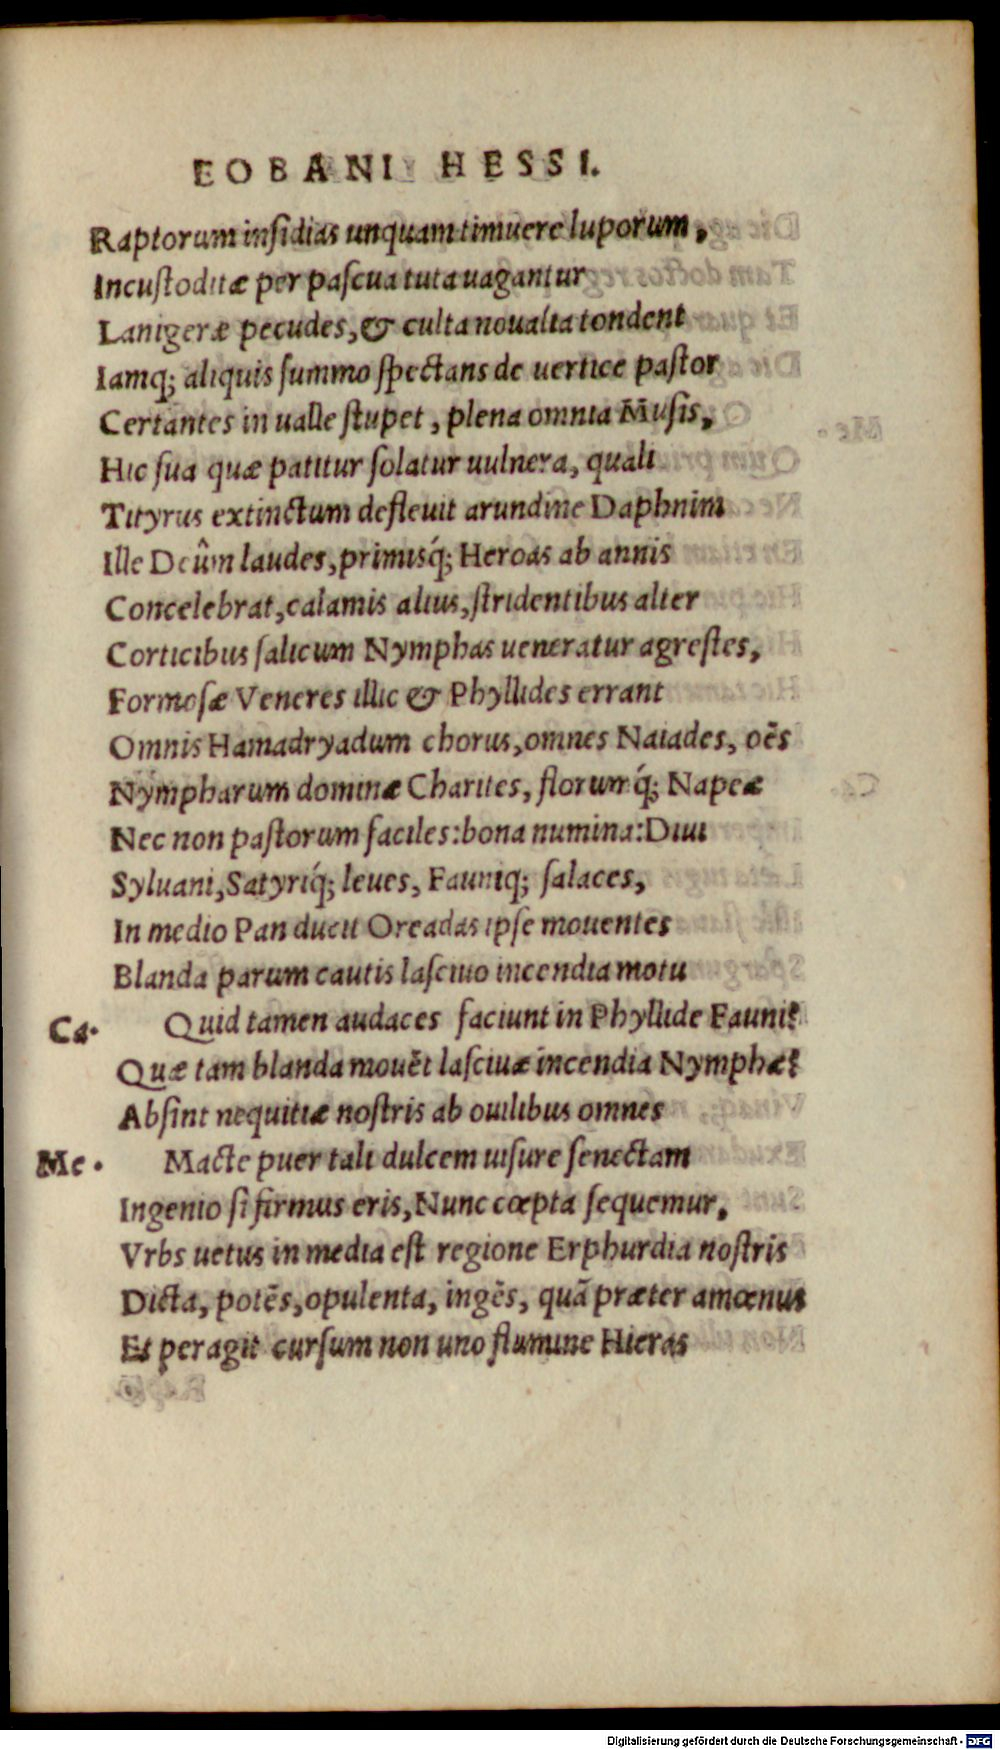 EOBANI HESSI.
Raptorum insidias unquam timuere luporum,
Incustoditæ per pascua tuta uagantur
Lanigeræ pecudes, & culta noualia tondent
Iamq; aliquis summo spectans de uertice pastor
Certantes in ualle stupet, plena omnia Musis,
Hic sua quæ patitur solatur uulnera, quali
Tityrus extinctum defleuit arundine Daphnim
Ille Deûm laudes, primisq́; Heroas ab annis
Concelebrat, calamis alius, stridentibus alter
Corticibus salicum Nymphas ueneratur agrestes,
Formosæ Veneres illic & Phyllides errant
Omnis Hamadryadum chorus, omnes Naiades, oẽs
Nympharum dominæ Charites, florumq́; Napeæ
Nec non pastorum faciles: bona numina: Diui
Syluani, Satyriq́; leues, Fauniq; salaces,
In medio Pan ducit Oreadas ipse mouentes
Blanda parum cautis lasciuo incendia motu
Ca. Quid tamen audaces faciunt in Phyllide Fauni?
Quæ tam blanda mouẽt lasciuæ incendia Nymphæ?
Absint nequitiæ nostris ab ouilibus omnes
Me. Macte puer tali dulcem uisure senectam
Ingenio si firmus eris, Nunc cœpta sequemur,
Vrbs uetus in media est regione Erphurdia nostris
Dicta, potẽs, opulenta, ingẽs, quã præter amœnus
Et peragit cursum non uno flumine Hieras
Digitalisierung gefördert durch die Deutsche Forschungsgemeinschaft - DFG